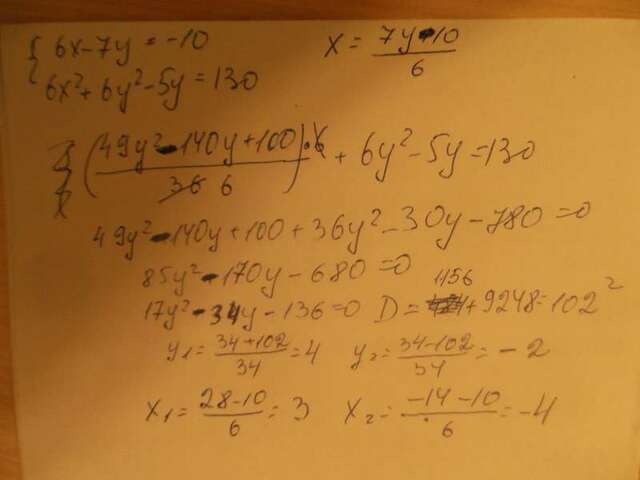 { 6x-7y = -10 x = 7y-10/6
6x²+6y²-5y=130
(49y²-140y+100/36 6)·6 + 6y²-5y=130
49y²-140y+100+36y²-30y-780=0
85y²-170y-680=0
17y²-34y-136=0 D=1156+9248=102²
y₁=34+102/34=4 y₂=34-102/34=-2
x₁=28-10/6=3 x₂=-14-10/6=-4